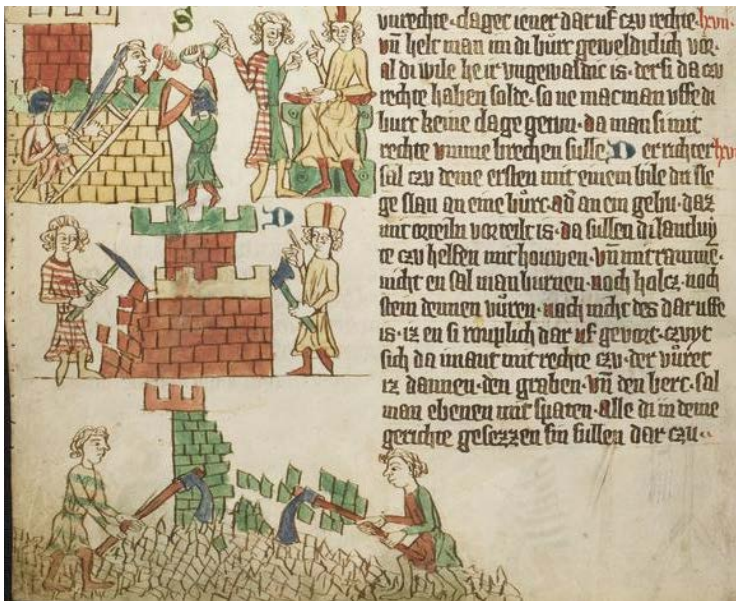 unrechte· clager iener dar uf czu rechte· lxvii·
vn̄ helt man im di burc geweldiclich vor·
al di wile he ir ungewaldic is· der si da czu
rechte haben solde· so ne mac man uffe di
burc keine clage getun· da man si mit
rechte umme brechen sulle· D er richter lxviii
sal czu deme ersten mit eime bile dri sle
ge slan an eine burc· ad' an ein gebu· daz
mit orteiln vorteilt is· da sullen di lantluy
te czu helfen mit houwen· vn̄ mit ramme̅·
nicht en sal man burnen· noch holcz· noch
stein dennen vuren· noch nicht des dar uffe
is· iz en si rouplich dar uf gevort· czuyt
sich da imant mit rechte czu· der vuret
iz dannen· den graben· vn̄ den berc· sal
man ebenen mit spaten· alle di in deme
gerichte gesezzen sin sullen dar czu··
S
D